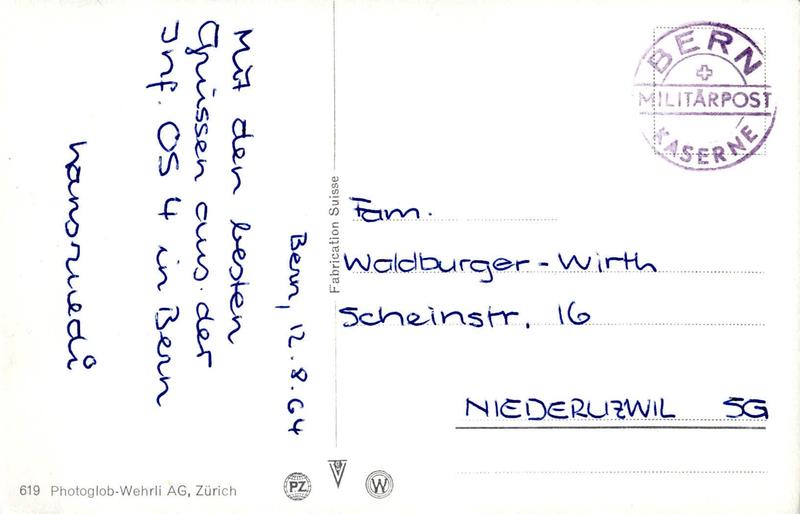 Bern, 12.8.64
Mit den besten
Grüssen aus der
Inf. OS 4 in Bern
hansruedi
BERN
MILITÄRPOST
KASERNE
Fam.
Waldburger-Wirth
Scheinstr. 16
NIEDERUZWIL SG
Fabrication Suisse
619 Photoglob-Wehrli AG, Zürich
PZ
W